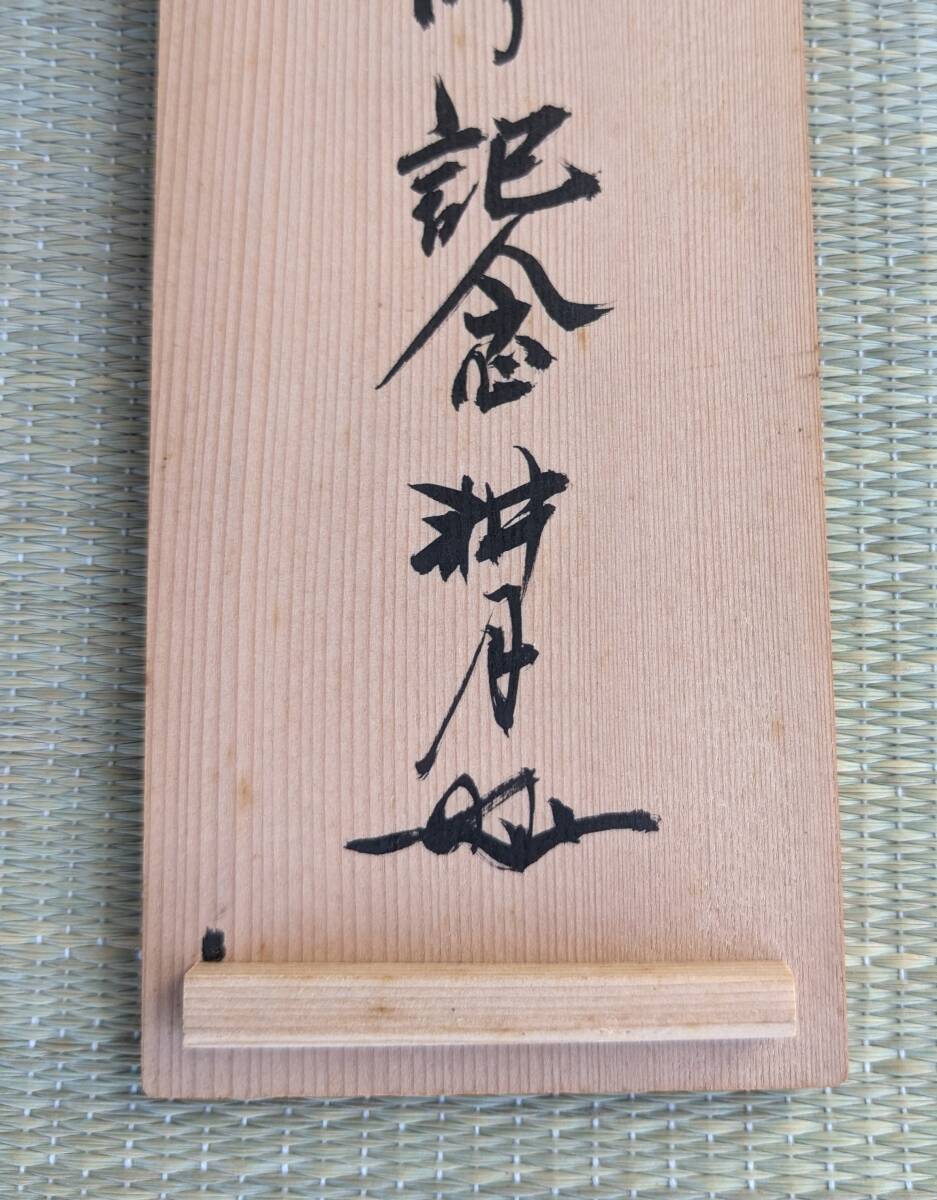 記念 耕月